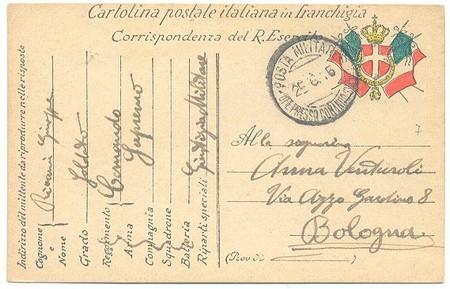 Cartolina postale italiana in franchigia
Corrispondenza del R. Esercito
POSTA MILITARE
Indirizzo del mittente da riprodurre nelle risposte
Cognome e Nome
Grado Soldato
Reggimento Comando
Arma Supremo
Compagnia
Squadrone
Batteria
Riparti speciali Giustizia Militare
7
Alla signorina
Anna Venturoli
Via Azzo Gardino 8
Bologna
(Prov. di )